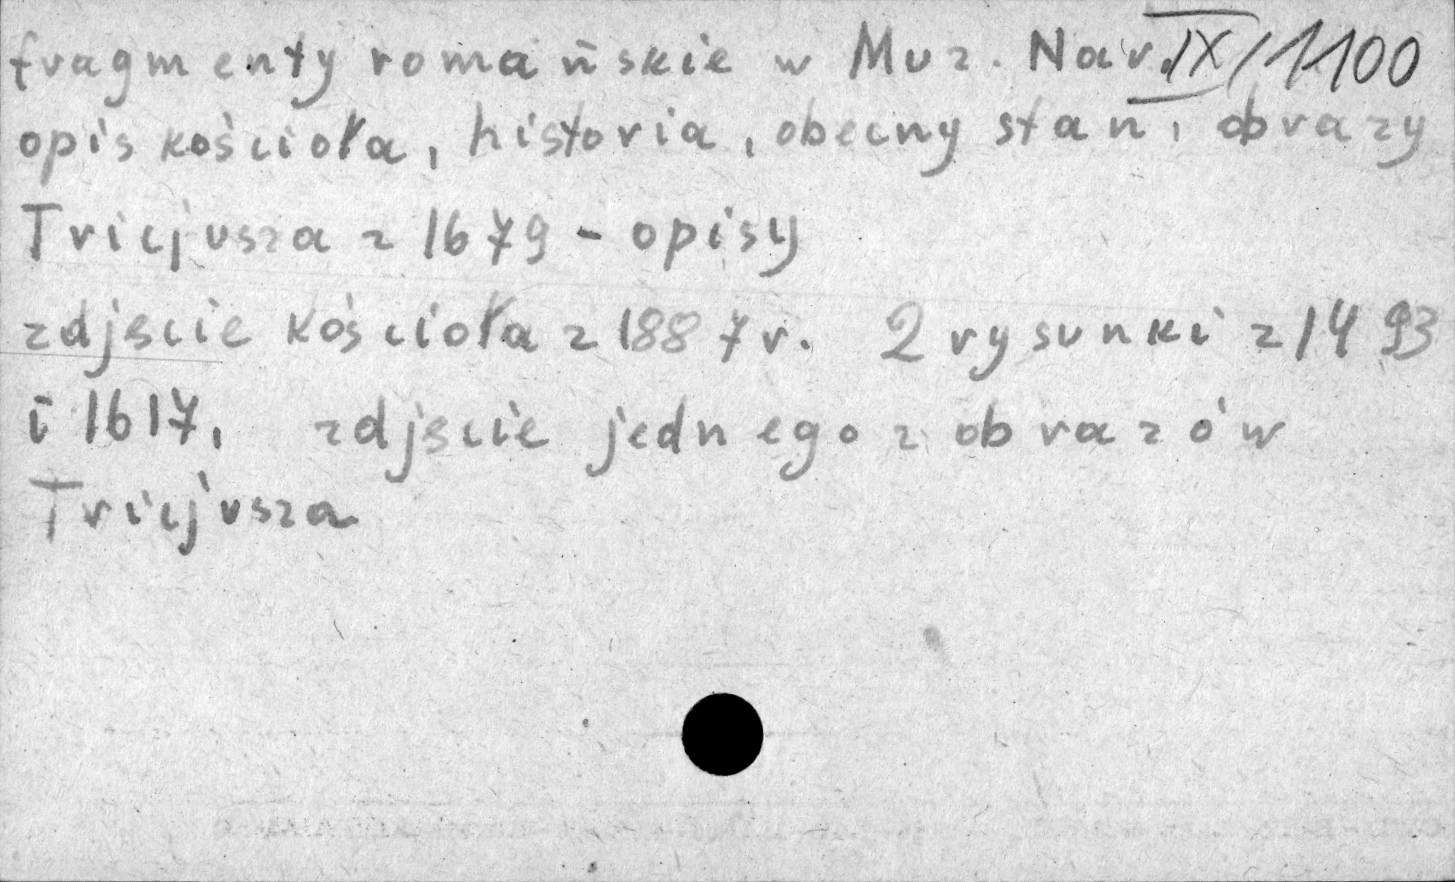 fragmenty romańskie w Muz. Nar. IX/1100
opis kościoła, historia, obecny stan, obrazy
Tricjusza z 1679 - opisy
zdjęcie kościoła z 1887 r. 2 rysunki z 1493
i 1617, zdjęcie jednego z obrazów
Tricjusza